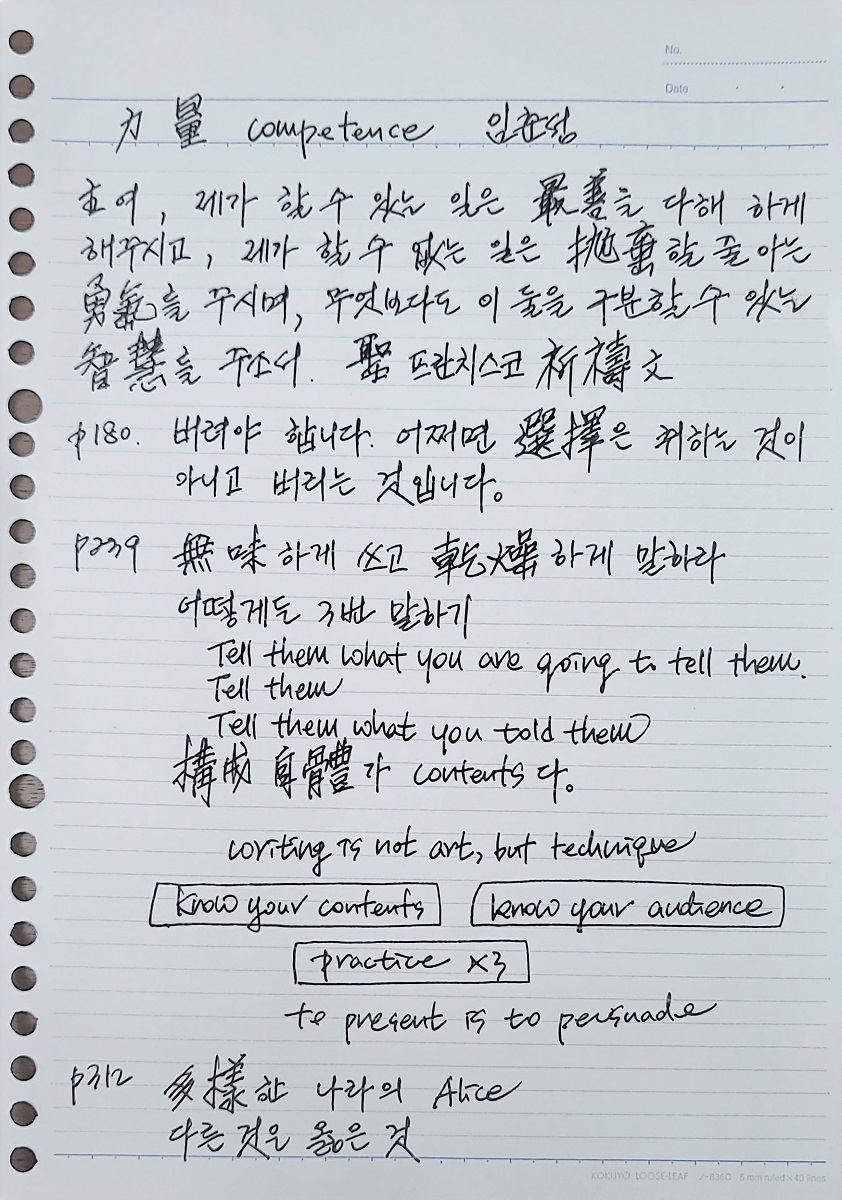 No.
Date
力量 competence 임춘성
主여, 제가 할 수 있는 일은 最善을 다해 하게
해주시고, 제가 할 수 없는 일은 抛棄할 줄 아는
勇氣를 주시며, 무엇보다도 이 둘을 구분할 수 있는
智慧를 주소서. 聖 프란치스코 祈禱文
p180. 버려야 합니다. 어쩌면 選擇은 취하는 것이
아니고 버리는 것입니다.
p239 無味하게 쓰고 乾燥하게 말하라
어떻게든 3번 말하기
Tell them what you are going to tell them.
Tell them
Tell them what you told them
構成 自體가 contents다.
writing is not art, but technique
know your contents know your audience
practice ×3
to present is to persuade
p312 多樣한 나라의 Alice
다른 것은 옳은 것
KOKUYO LOOSE-LEAF ノ-836C 5 mm ruled × 43 lines